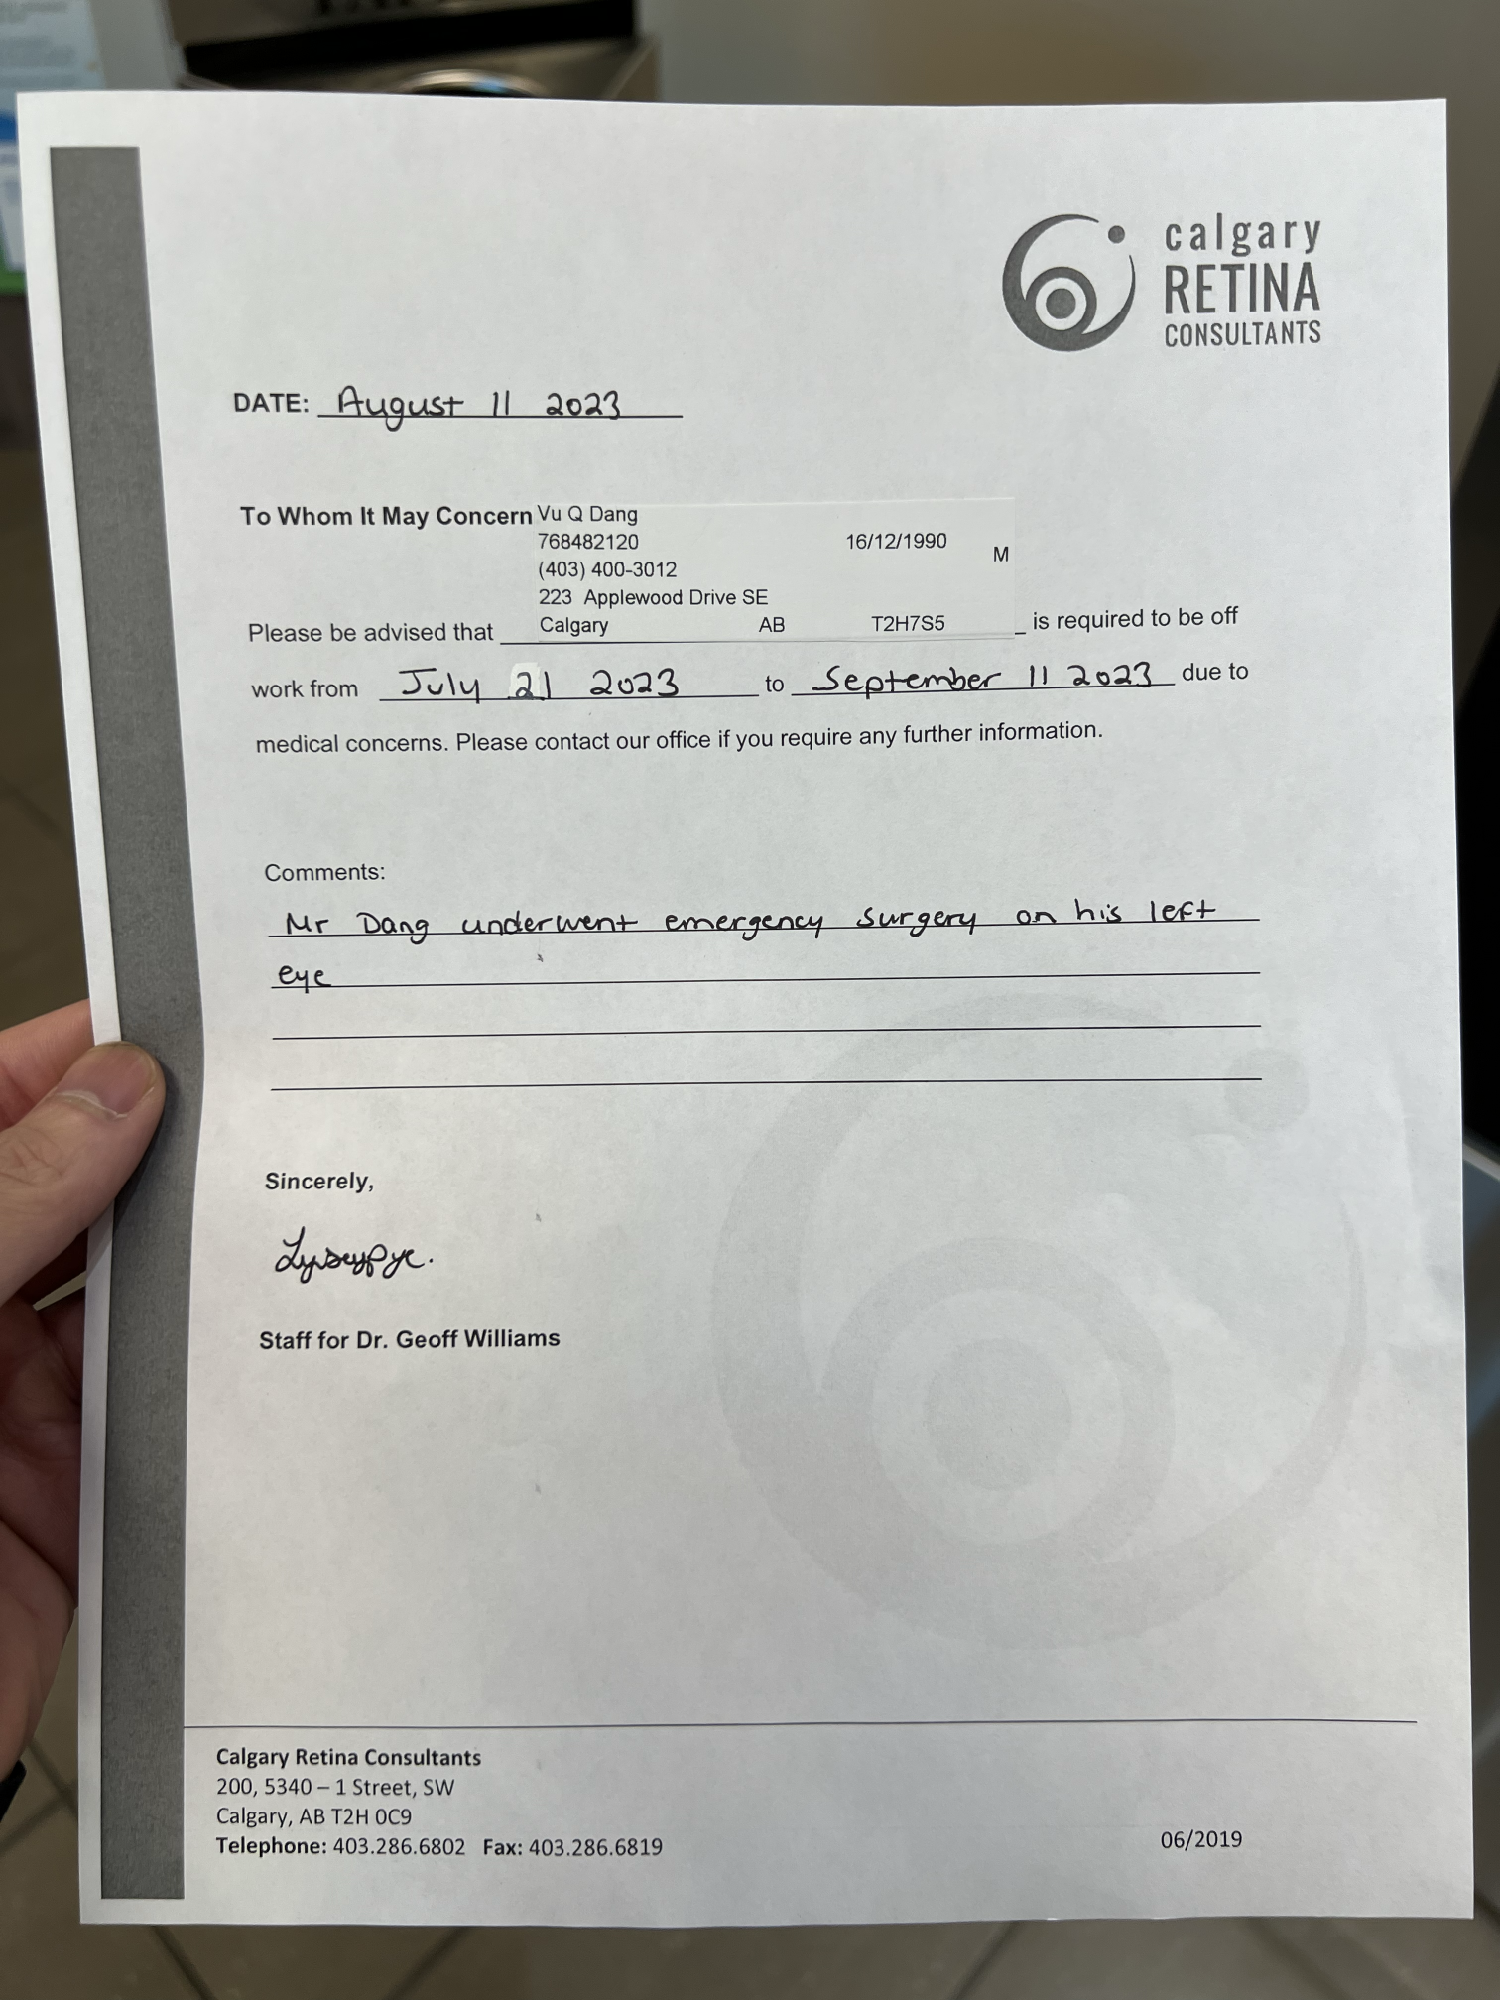 calgary
RETINA
CONSULTANTS
DATE: August 11 2023
To Whom It May Concern Vu Q Dang
768482120 16/12/1990 M
(403) 400-3012
223 Applewood Drive SE
Calgary AB T2H7S5
Please be advised that is required to be off
work from July 21 2023 to September 11 2023 due to
medical concerns. Please contact our office if you require any further information.
Comments:
Mr Dang underwent emergency surgery on his left
eye
Sincerely,
Staff for Dr. Geoff Williams
Calgary Retina Consultants
200, 5340 – 1 Street, SW
Calgary, AB T2H 0C9
Telephone: 403.286.6802 Fax: 403.286.6819
06/2019